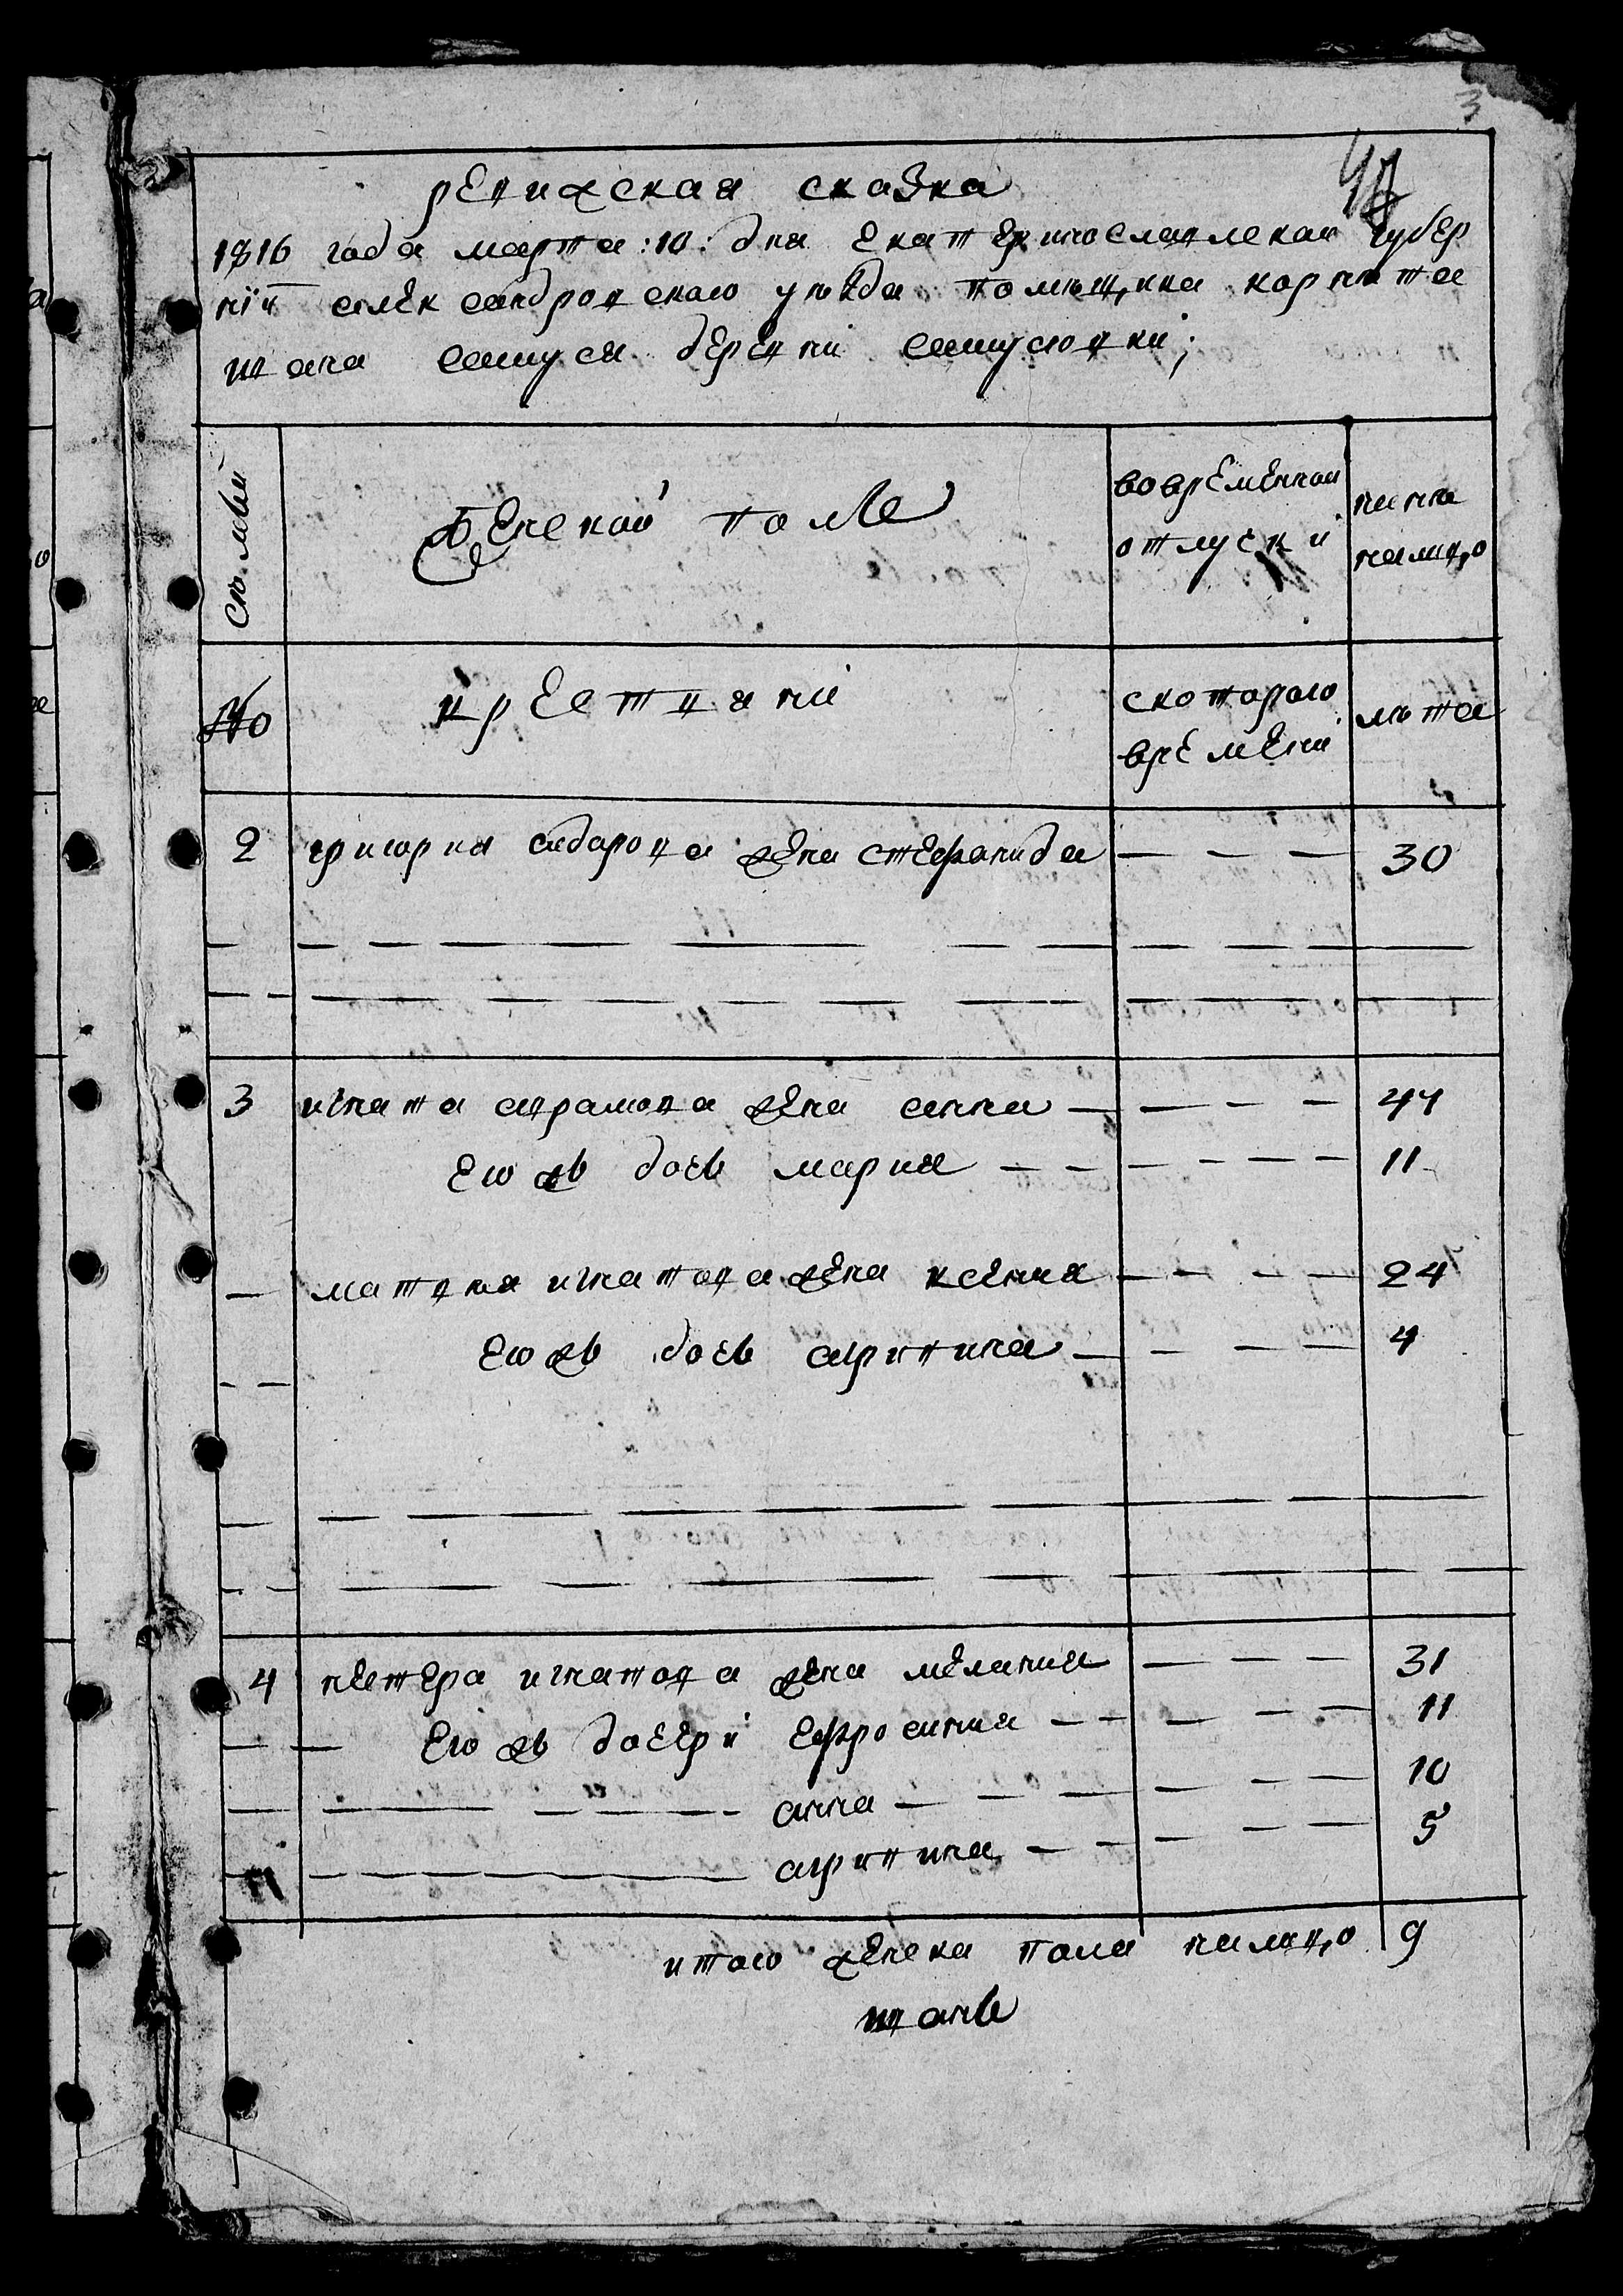 3
ревижская сказка
1816 года марта :10: дня екатеринославлской губер
нїи александровского уѣзда помѣщика корнета
ивана сапуся деревни сапусювки;
сѣмьи
Женской полъ
во временной
отлуски
нынѣ
на лицо
№
крестьяни
с которого
времени
лѣта
2 григория сидарова жена стефанида — — — 30
3 игната аврамова жена анна — — — — 44
его жъ дочь мария — — — — — 11
— матвѣя игнатова жена ксения — — — — 24
его жъ дочь агрипина — — — — 4
4 нестера игнатова жена мелания — — — 31
его жъ дочери ефросиния — — — — — 11
анна — — — — — 10
агрипина — — — — — 5
итого женска пола на лицо 9